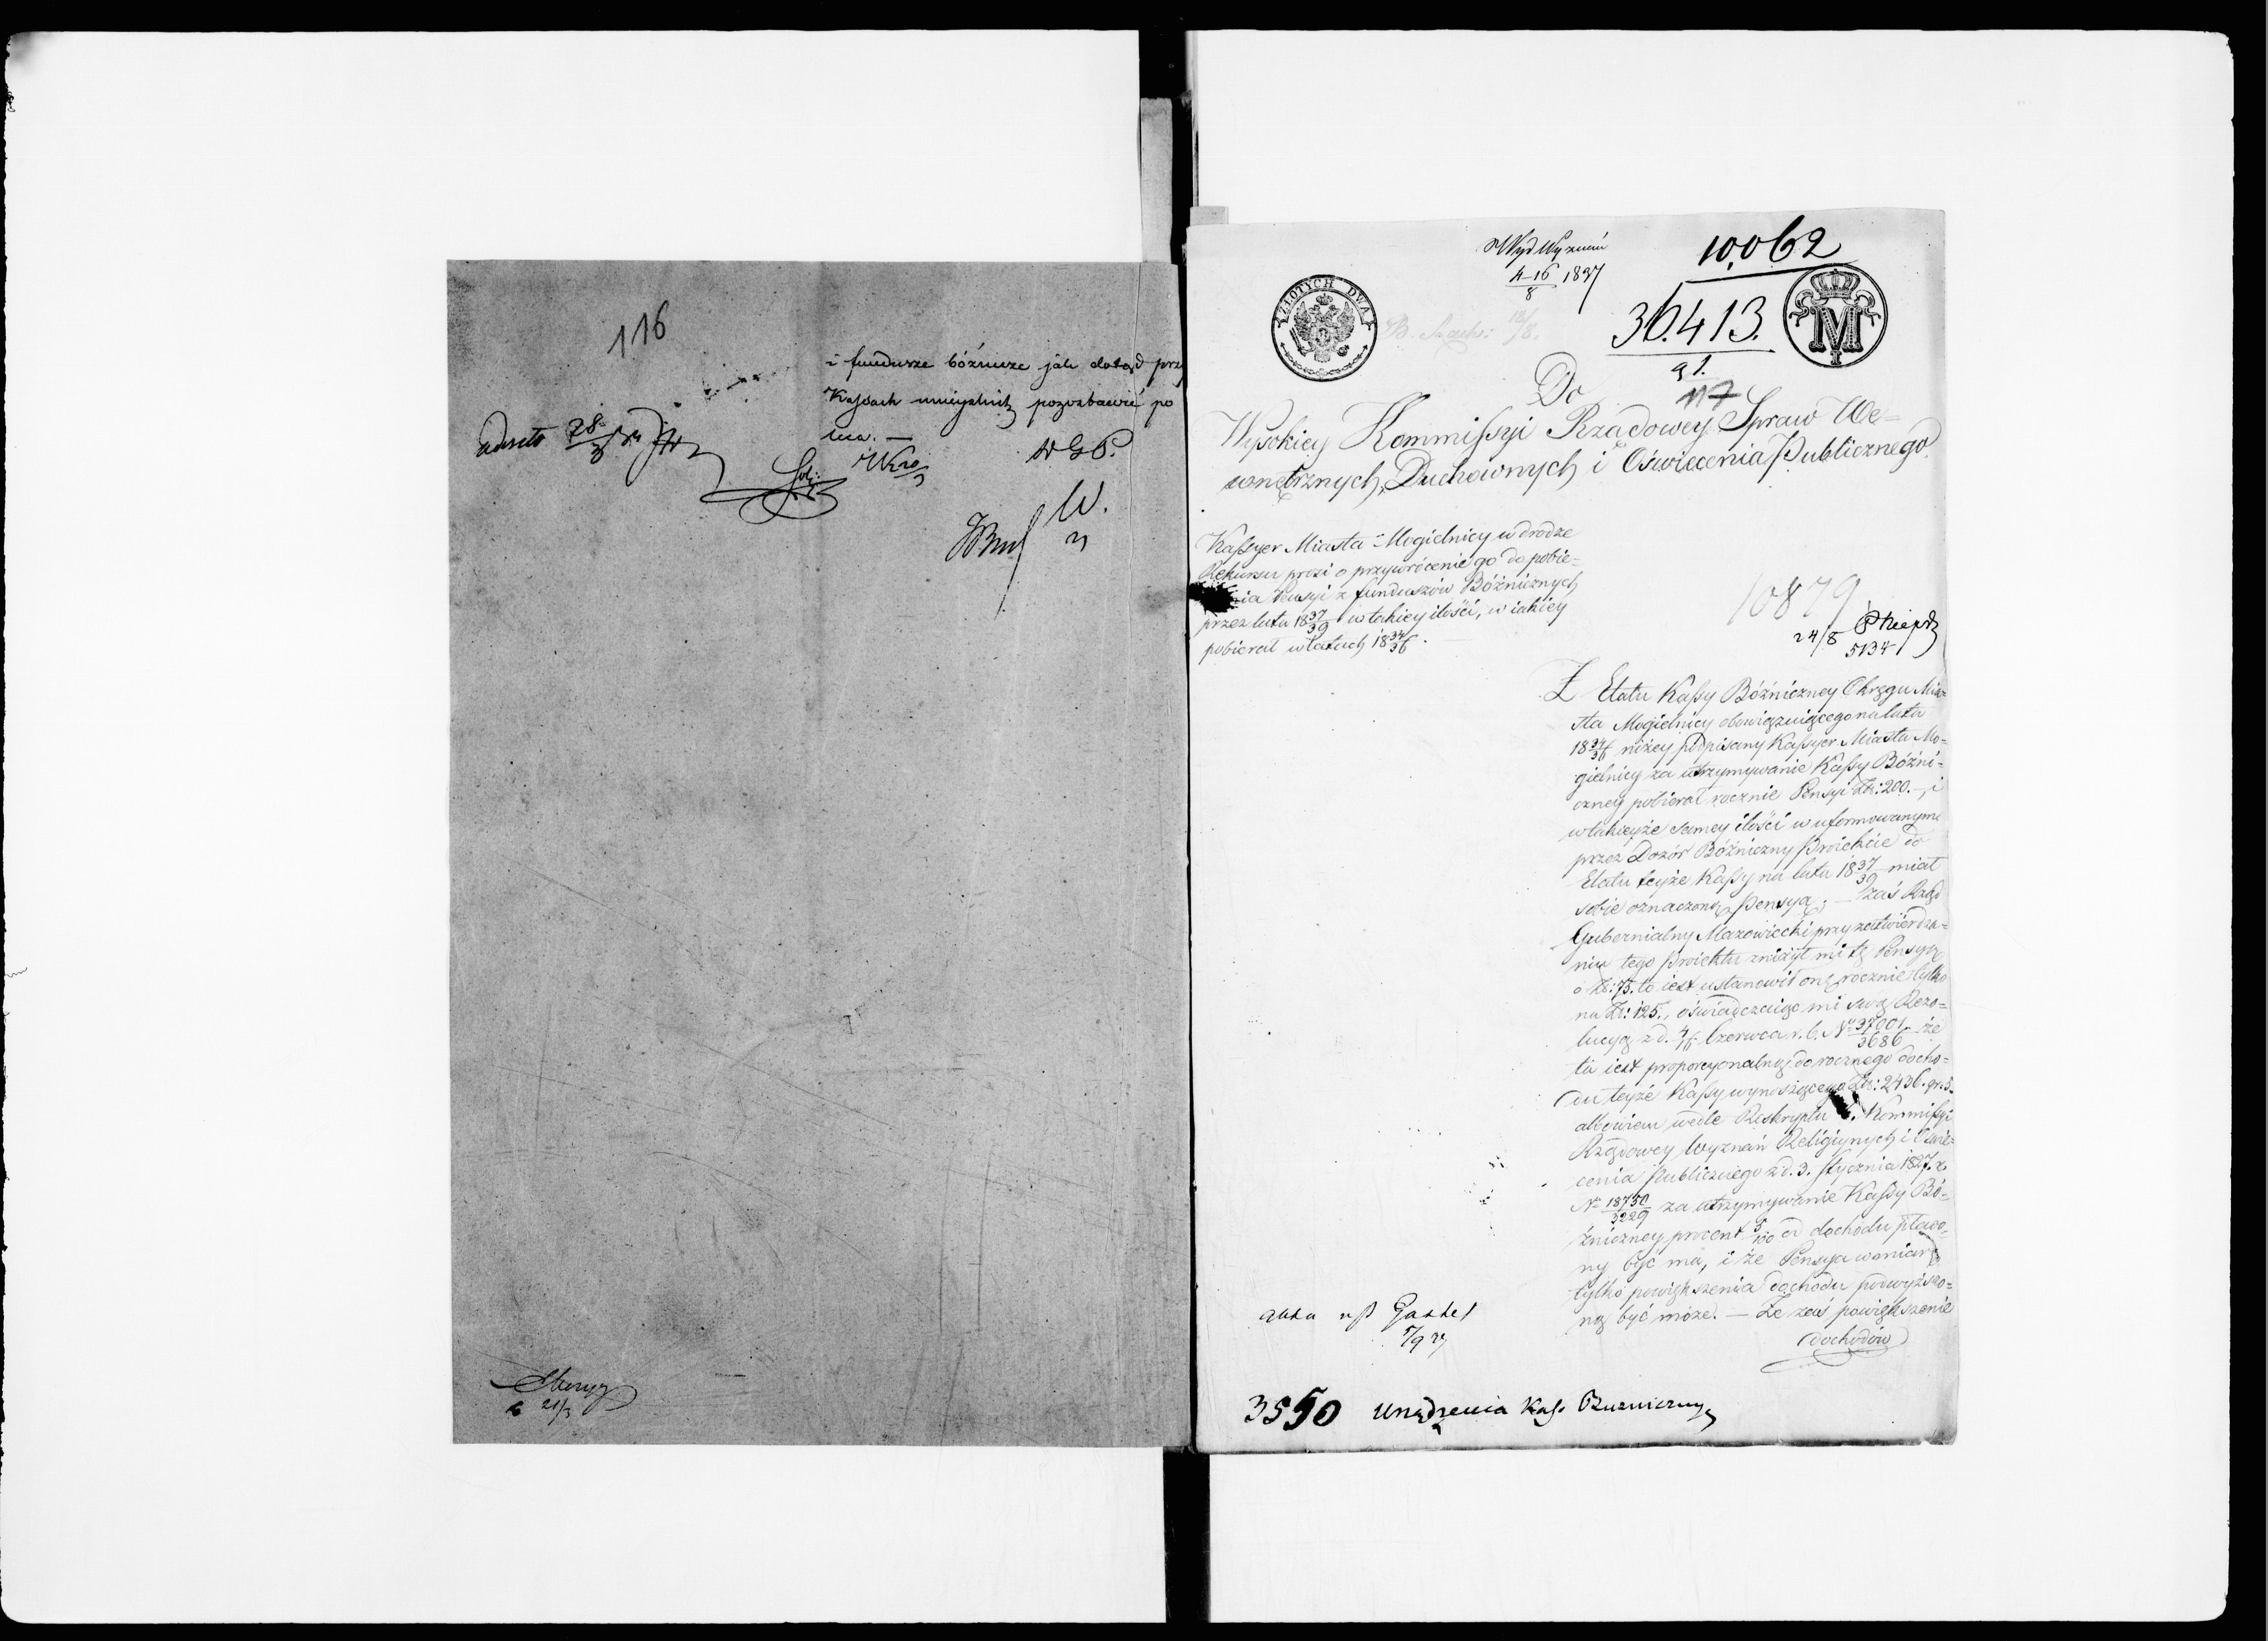 116
i fundusze bóźnicze jak dotąd przy
Kassach pozostawić po
W.
21/3
Wyd Wyznań
4-16 1837
8
10,062
ZŁOTYCH DWA
36.413.
91.
M
Do
117
Wysokiey Kommissyi Rządowey Spraw We=
wnętrznych, Duchownych i Oświecenia Publicznego
Kassyer Miasta Mogielnicy w drodze
Rekursu prosi o przywrócenie go do pobie=
nia Pensyi z funduszów Bóżnicznych
przez lata 18 37/39 w takiey ilości, w iakiey
pobierał w latach 18 34/36.
10879
24/8
5134
Z Etatu Kassy Bóżniczney Okręgu Mia=
sta Mogielnicy obowiązuiącego na lata
18 34/36 niżey podpisany Kassyer Miasta Mo=
gielnicy za utrzymywanie Kassy Bóżni=
czney pobierał rocznie Pensyi Złt: 200.–, i
w takieyże samey ilości w uformowanym
przez Dozór Bóżniczny Proiekcie do
Etatu teyże Kassy na lata 18 37/39 miał
sobie oznaczoną Pensyą; — zaś Rząd
Gubernialny Mazowiecki przy zatwierdza=
niu tego Proiektu zniżył mi tę Pensyą
o Zł: 75. to iest ustanowił onę rocznie tylko
na Zł: 125., oświadczaiąc mi swą Rezo=
lucyą z d. 4/16 Czerwca r. b. No 37001/3686 że
ta iest proporcyonalną do rocznego docho=
du teyże Kassy wynoszącego Złt: 2436. gr. 5.
albowiem wedle Reskryptu b. Kommissyi
Rządowey Wyznań Religiynych i Oświe=
cenia Publicznego z d. 3. Stycznia 1827. r.
No 18750/3229 za utrzymywanie Kassy Bó=
żniczney procent 5/100 od dochodu płaco=
ny być ma, i że Pensya w miarę
tylko powiększenia dochodu podwyższo=
ną być może. — Że zaś powiększenie
dochodów
3550 Urządzenia Kass.